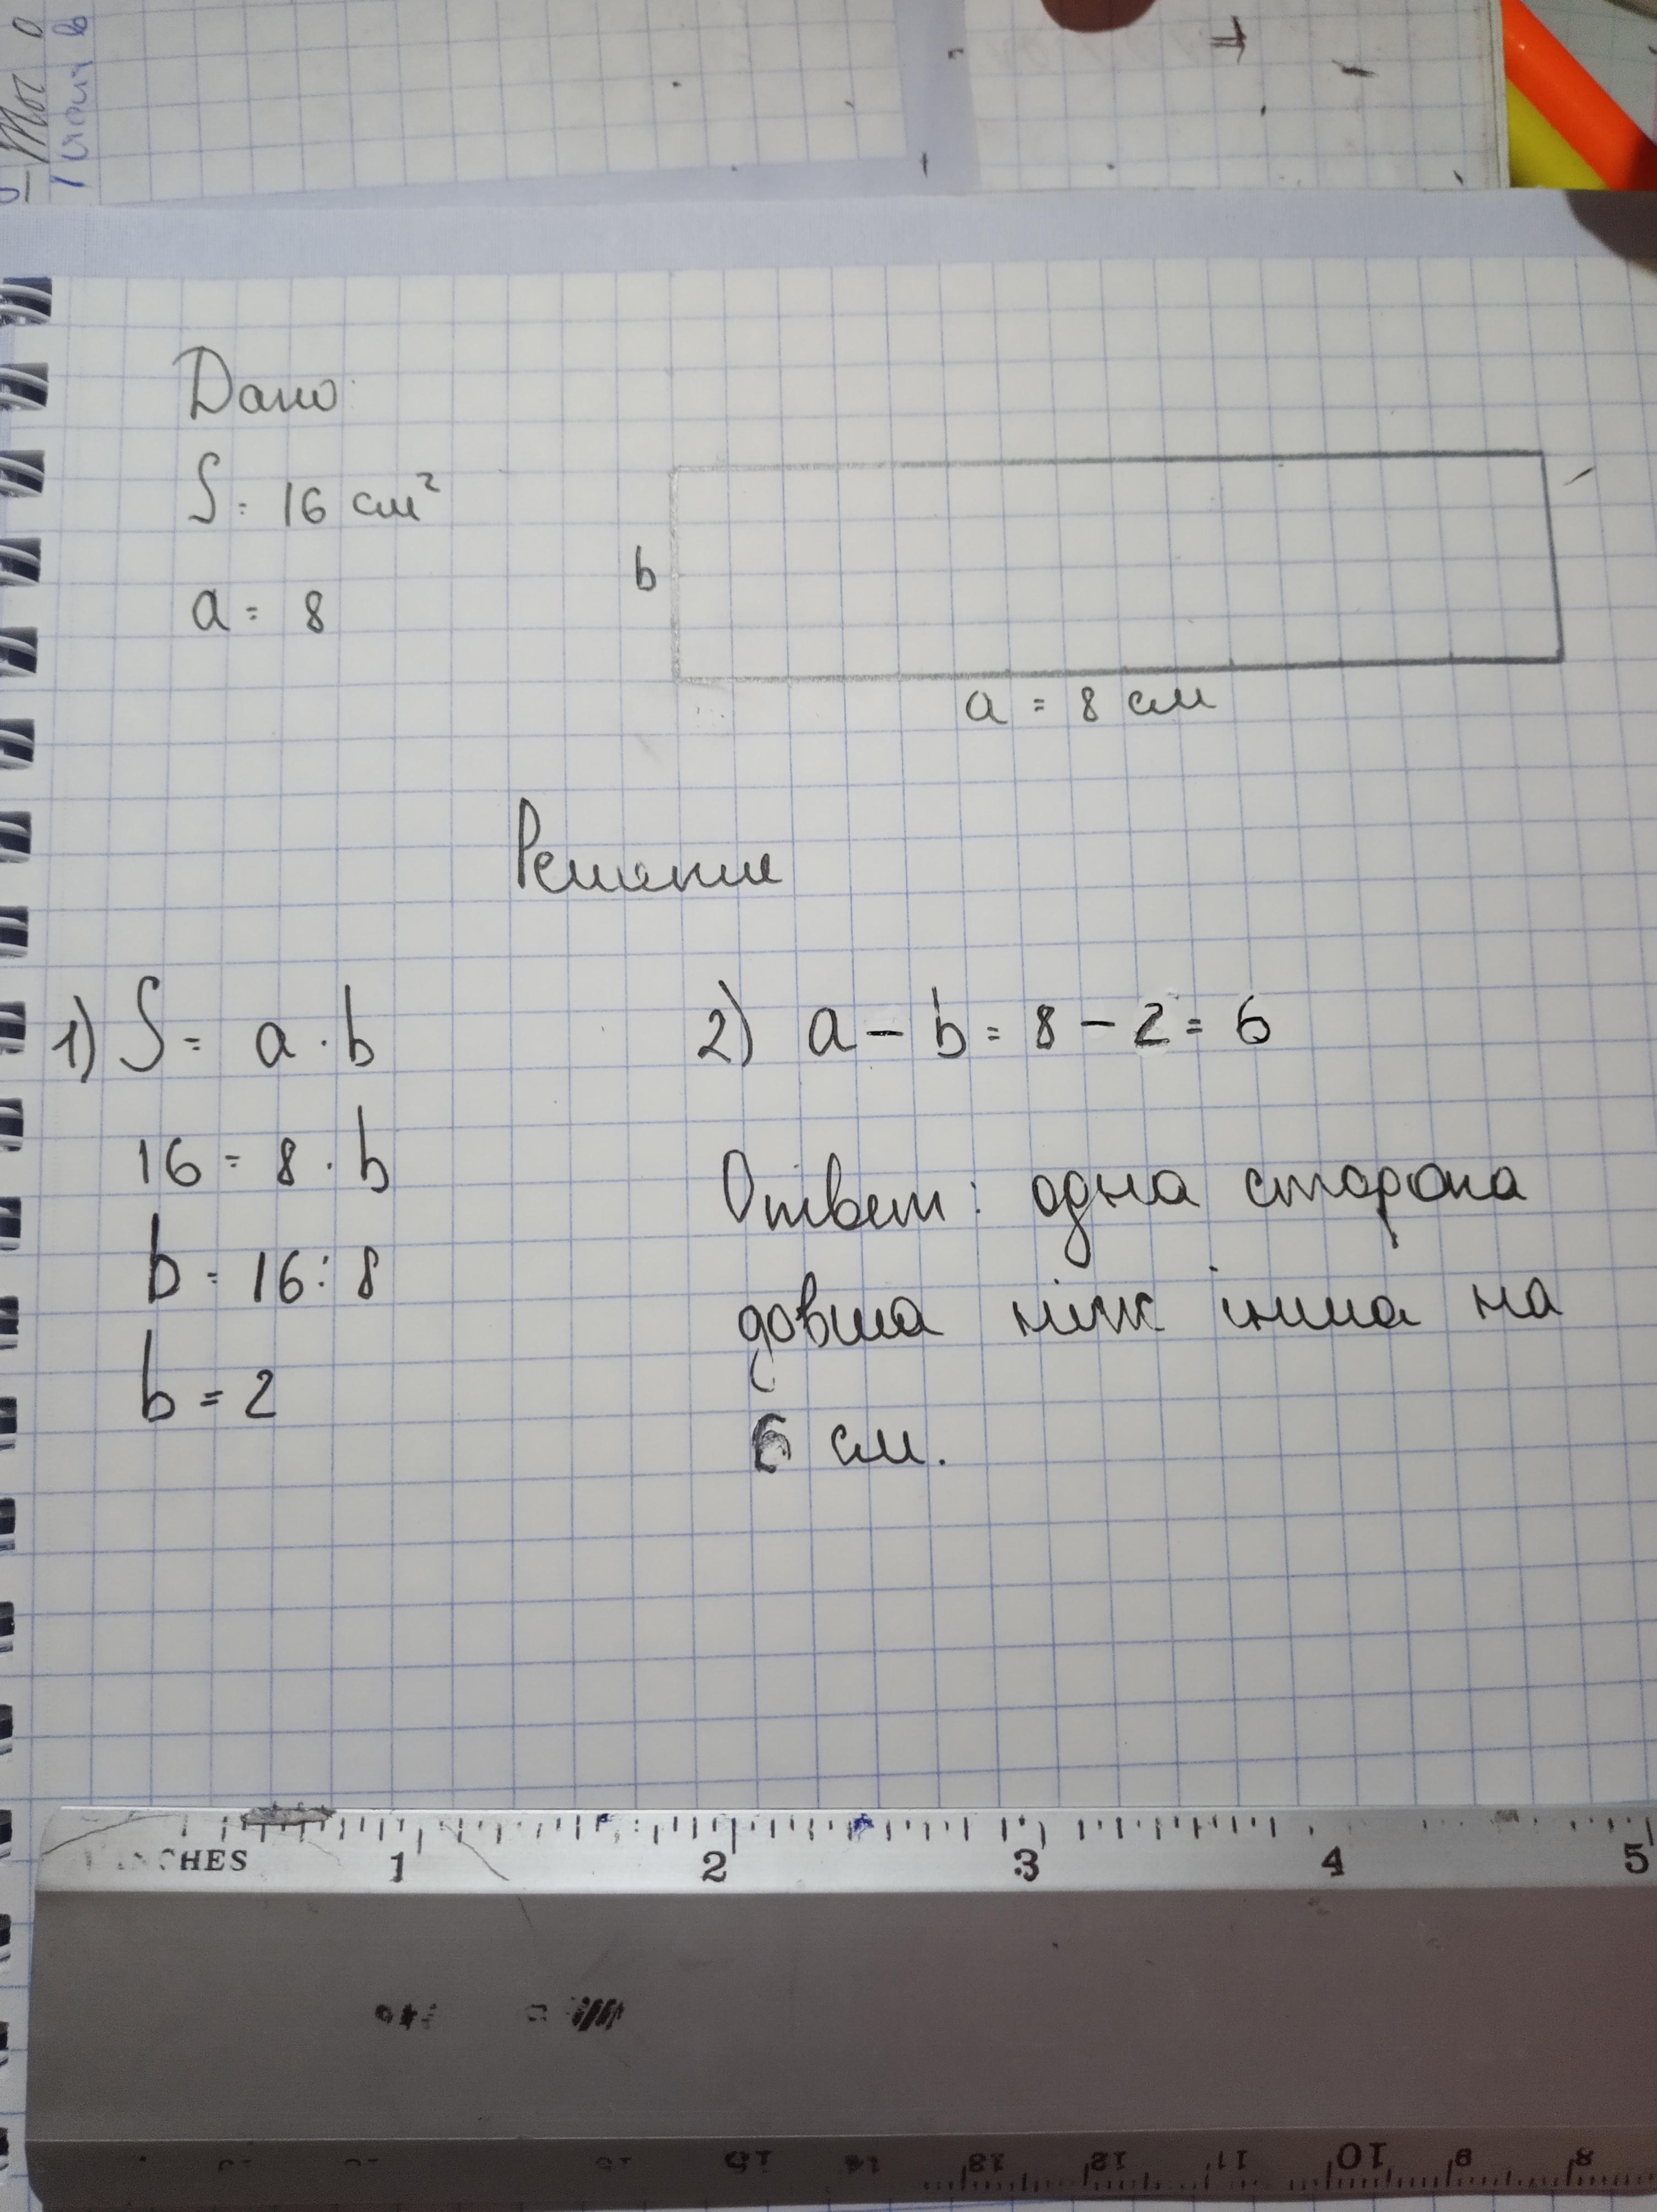 Дано
S = 16 см²
a = 8
b
a = 8 см
Решение
1) S = a · b
16 = 8 · b
b = 16 : 8
b = 2
2) a - b = 8 - 2 = 6
Ответ: одна сторона
довша ніж інша на
6 см.
INCHES 1 2 3 4 5
15 14 13 12 11 10 9 8